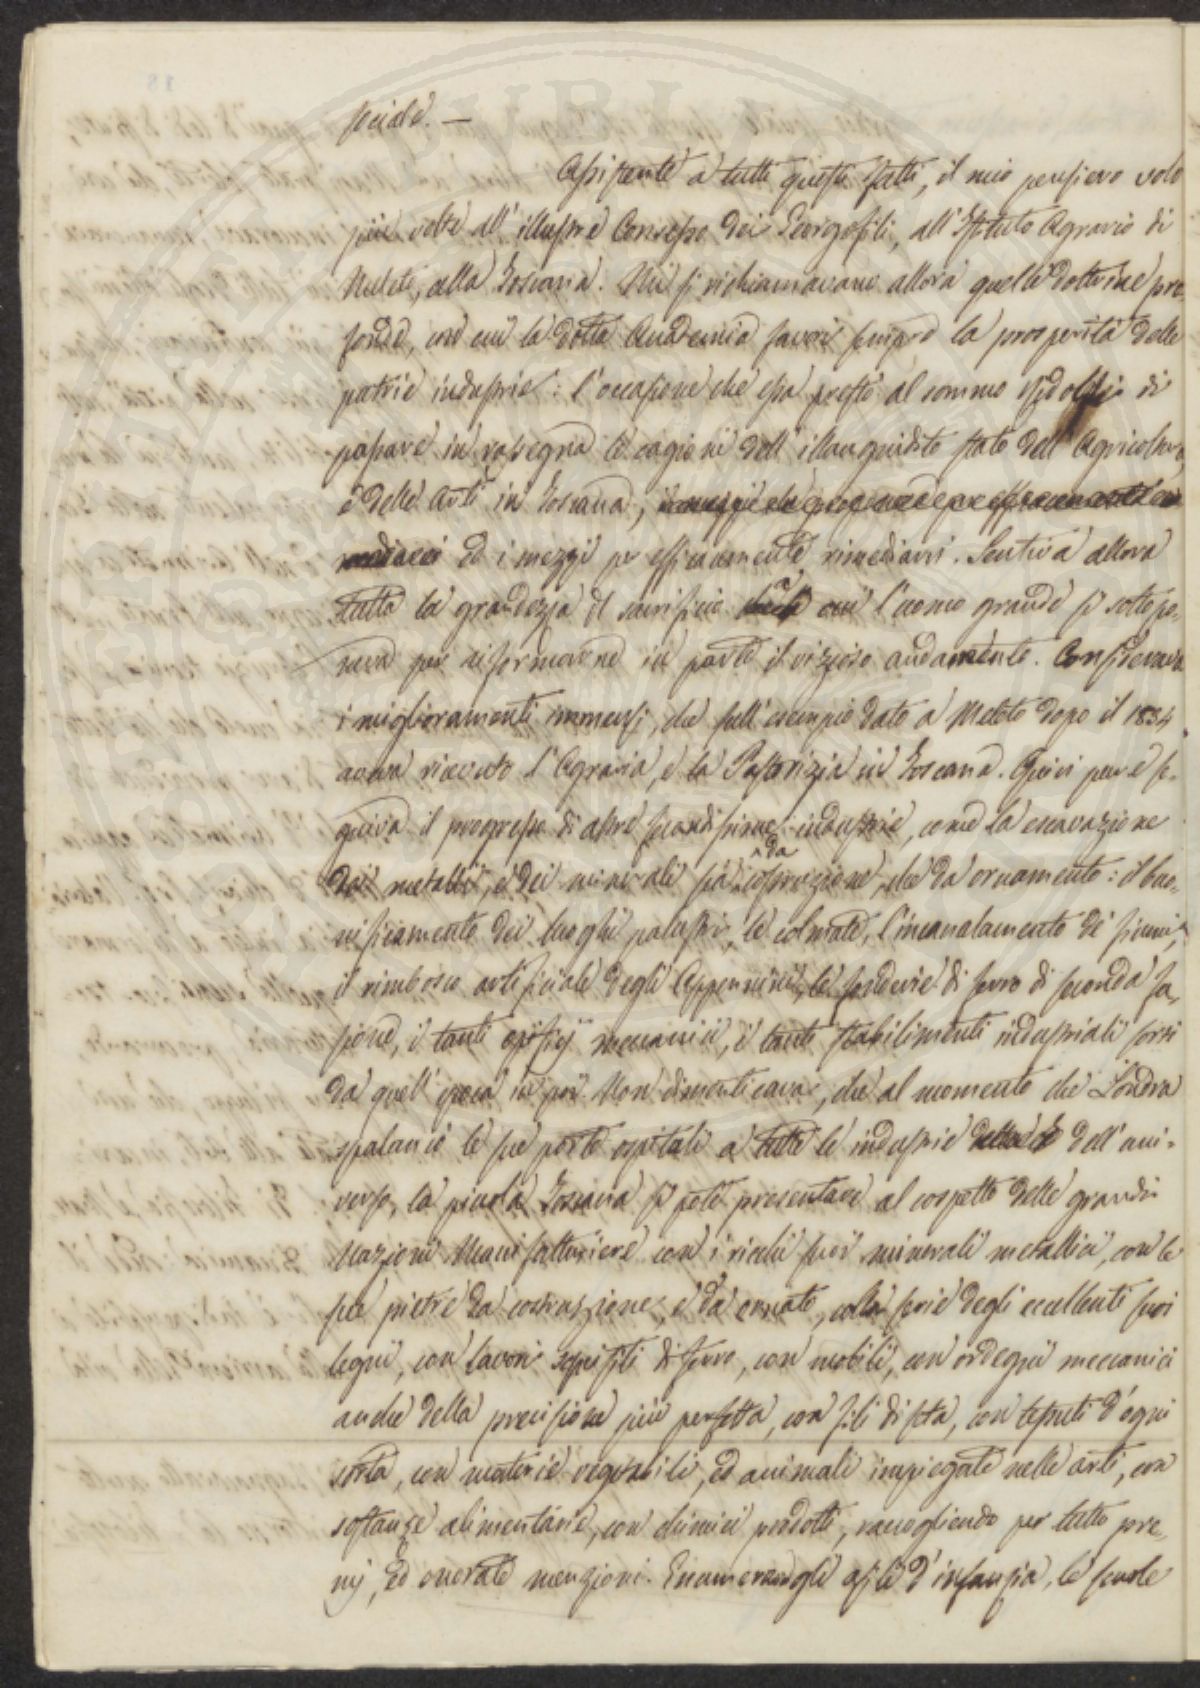 sociale. —
Assistente a tutti questi fatti, il mio pensiero volò
più volte all'illustre Consesso dei Georgofili, all'Istituto Agrario di
Meleto, alla Toscana. Mi si richiamavano allora quelle dottrine pro-
fonde, con cui la dotta Accademia favorì sempre la prosperità delle
patrie industrie: l'occasione che essa prestò al sommo Ridolfi di
passare in rassegna le cagioni dell'illanguidito stato dell'Agricoltura
e delle Arti in Toscana,
ed i mezzi per efficacemente rimediarvi. Sentiva allora
tutta la grandezza del sacrificio a cui l'uomo grande si sottopo-
neva per riformarne in parte il vizioso andamento. Considerava
i miglioramenti immensi, che sull'esempio dato a Meleto dopo il 1834
aveva ricevuto l'Agraria, e la Pastorizia in Toscana. Quivi pure se-
guiva il progresso di altre fecondissime industrie, come la escavazione
dei metalli, e dei minerali sia da costruzione, che da ornamento: il buo-
nificamento dei luoghi palustri, le colmate, l'incanalamento de' fiumi,
il rimbosco artificiale degli Appennini, le fonderie di ferro di seconda fu-
sione, i tanti opifizj meccanici, i tanti stabilimenti industriali sorsi
da quell'epoca in poi. Non dimenticava, che al momento che Londra
spalancò le sue porte ospitali a tutte le industrie dell'uni-
verso, la piccola Toscana si poté presentare al cospetto delle grandi
Nazioni Manifatturiere con i ricchi suoi minerali metallici, con le
sue pietre da costruzione, e da ornato, colla serie degli eccellenti suoi
legni, con lavori squisiti di ferro, con mobili, con ordegni meccanici
anche della precisione più perfetta, con fili di seta, con tessuti d'ogni
sorta, con materie vegetabili, ed animali impiegate nelle arti, con
sostanze alimentarie, con chimici prodotti, raccogliendo per tutto pre-
mj, ed onorate menzioni. Enumerando gli asili d'infanzia, le scuole